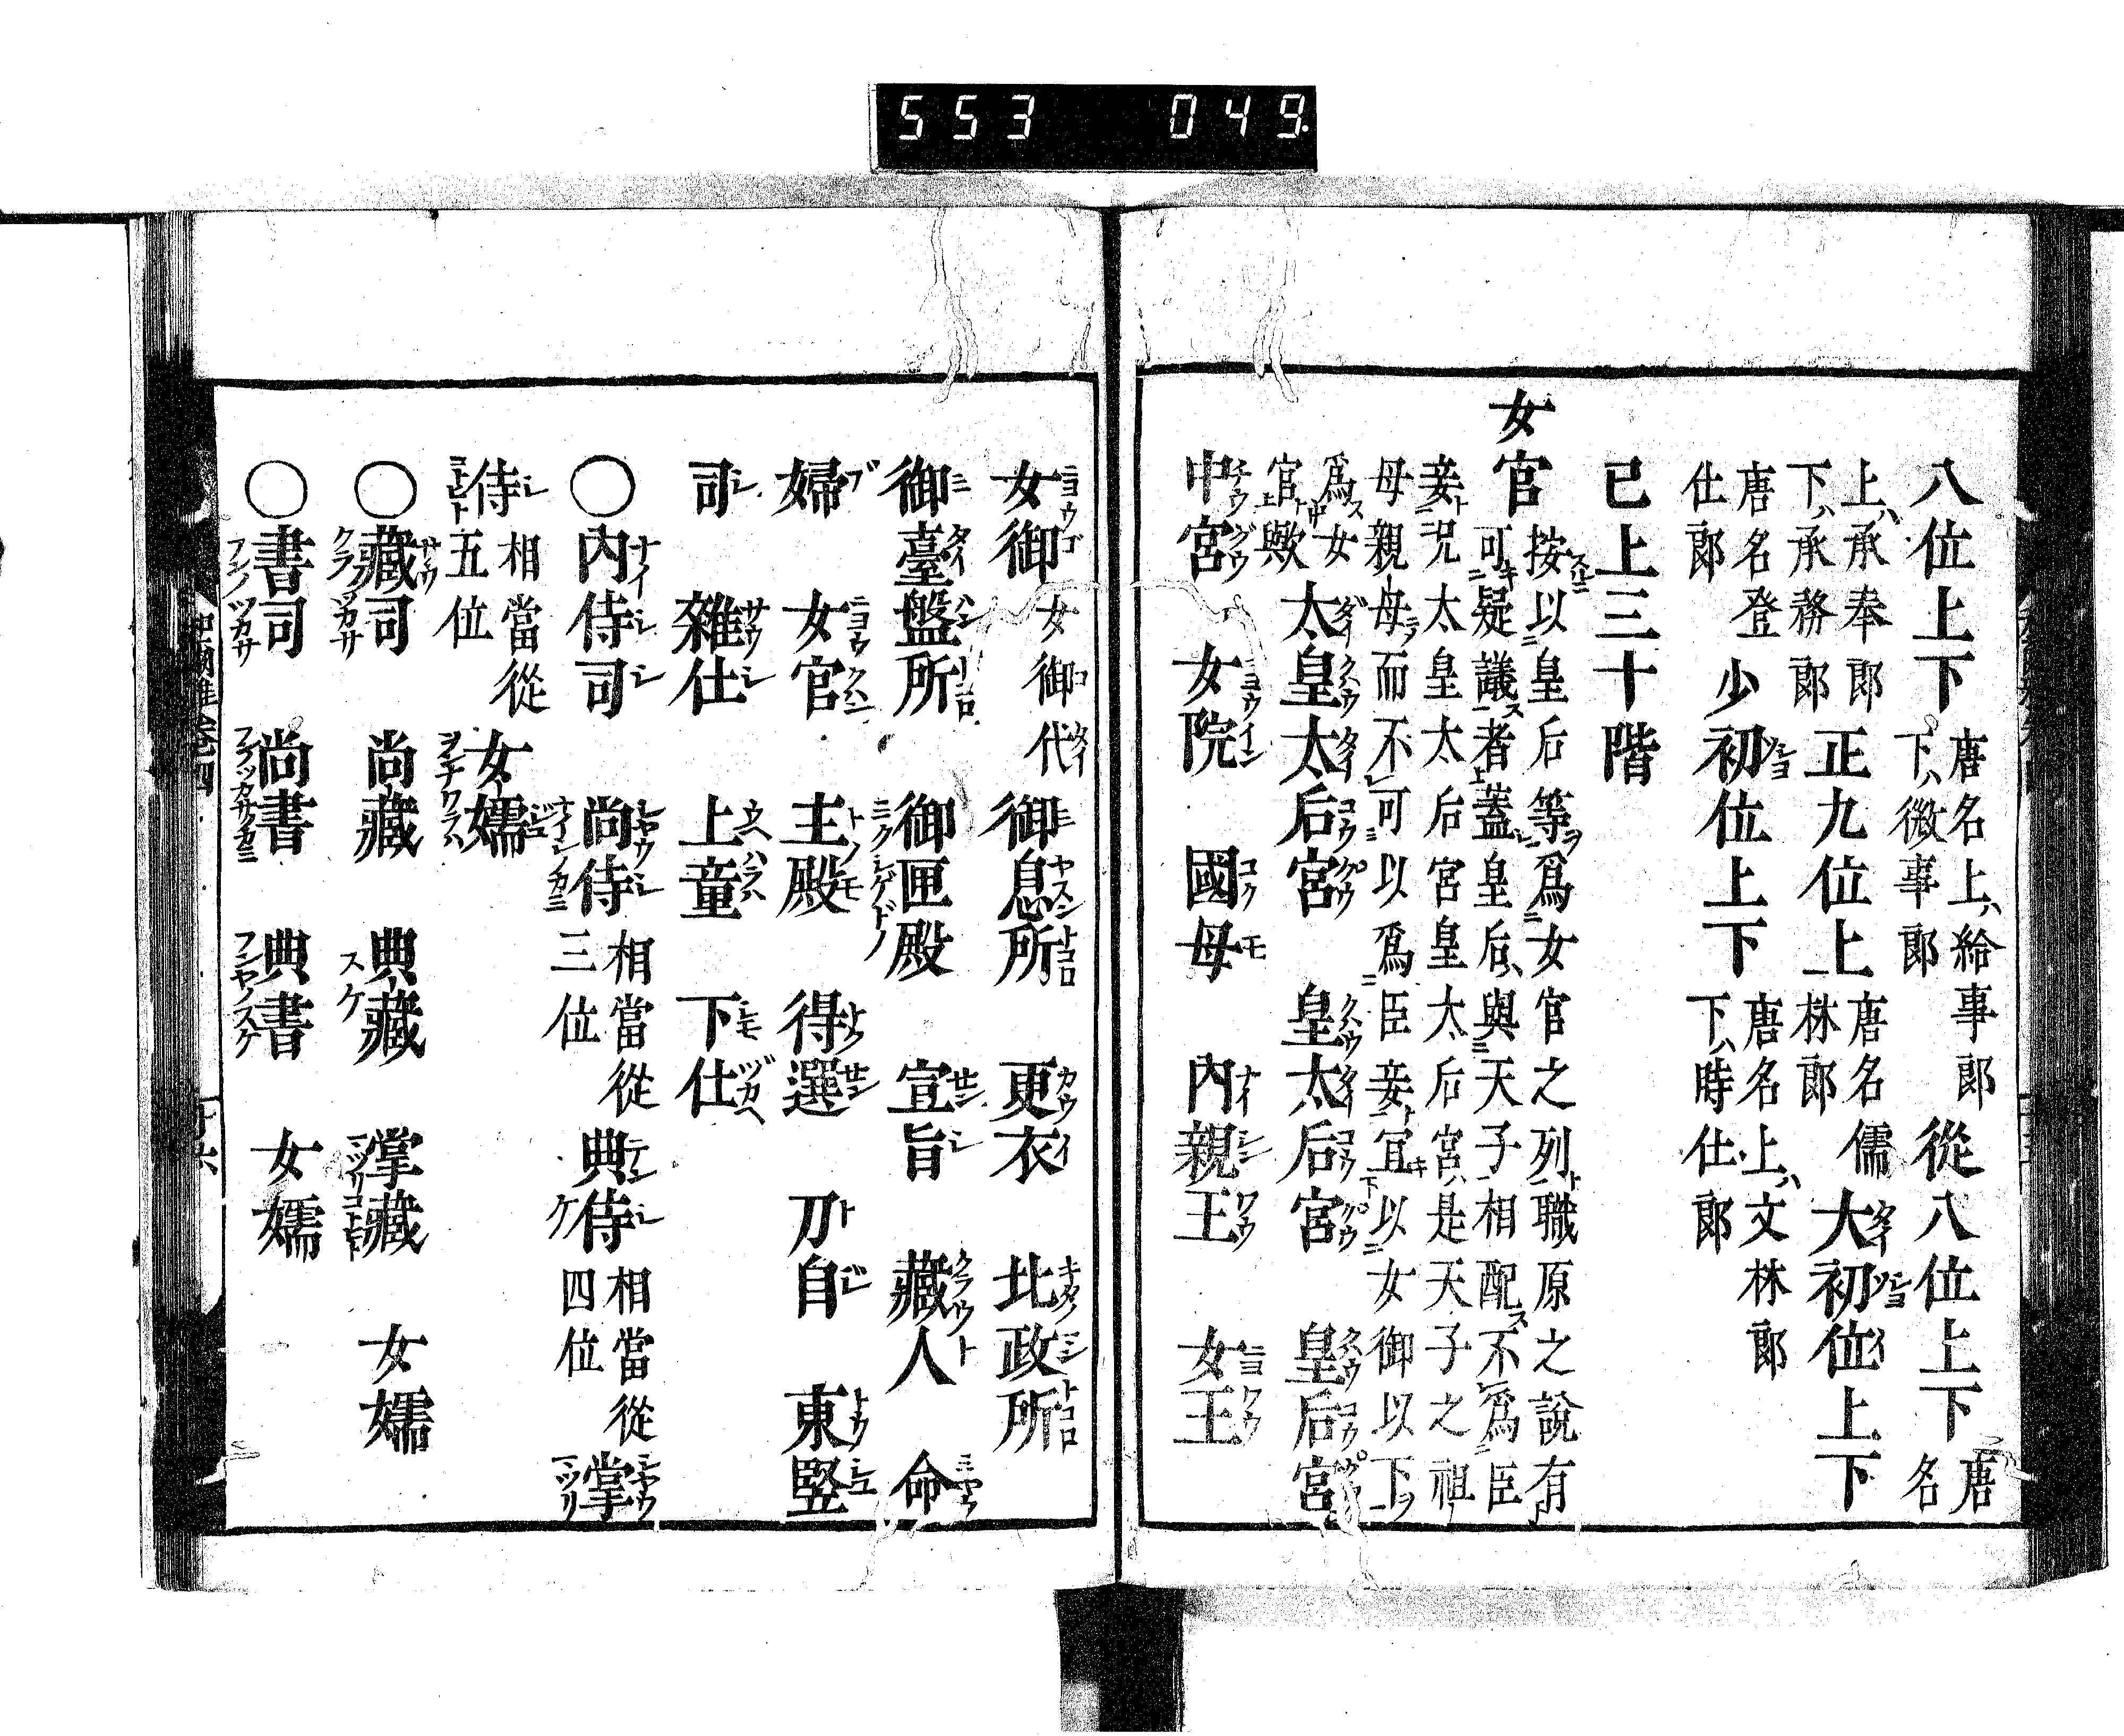 553 049
八位上下 唐名上ハ給事郎下ハ微事郎 從八位上下 唐名
上ハ承奉郎下ハ承務郎 正九位上 唐名儒林郎 大初位上下
唐名登仕郎 少初位上下 唐名上ハ文林郎下ハ時仕郎
已上三十階
女官 按以皇后等爲女官之列職原之說有
可疑議者蓋皇后與天子相配不爲臣
妾況太皇太后宮皇太后宮ハ是天子之祖
母親母而不可以爲臣妾宜以女御以下
爲女官歟 太皇太后宮 皇太后宮 皇后宮
中宮 女院 國母 內親王 女王
女御 女御代 御息所 更衣 北政所
御臺盤所 御匣殿 宣旨 藏人 命
婦 女官 主殿 得選 刀自 東竪
司 雜仕 上童 下仕
〇內侍司 尚侍 相當從三位 典侍 相當從四位 掌
侍 相當從五位 女嬬
〇藏司 尚藏 典藏 掌藏 女嬬
〇書司 尚書 典書 女嬬